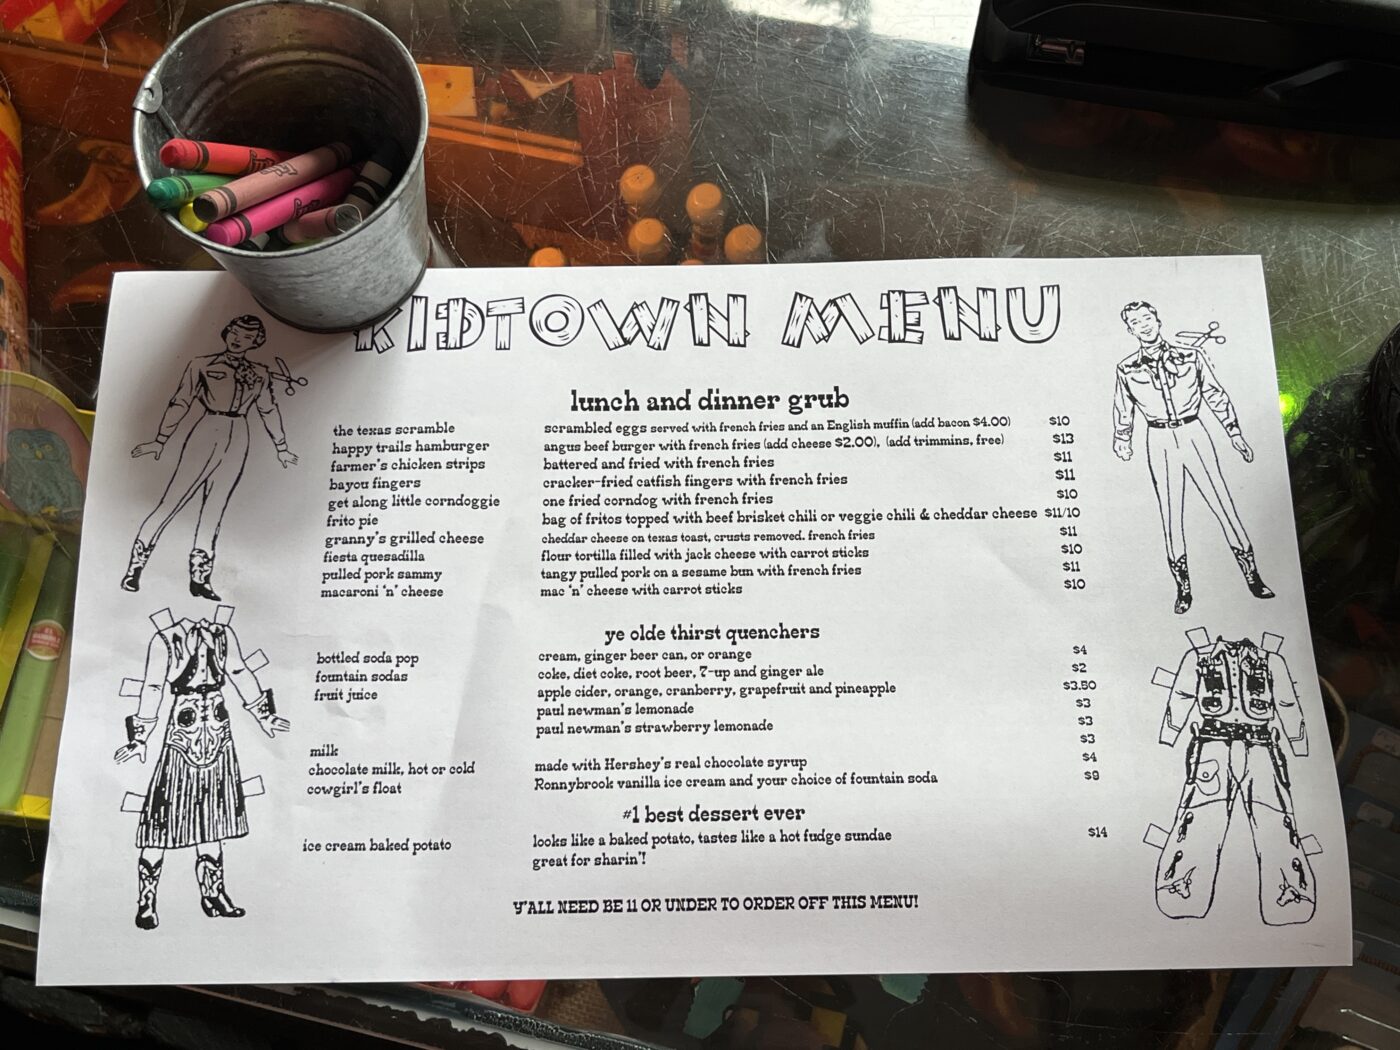 KIDTOWN MENU
lunch and dinner grub
the texas scramble scrambled eggs served with french fries and an English muffin (add bacon $4.00) $10
happy trails hamburger angus beef burger with french fries (add cheese $2.00), (add trimmins, free) $13
farmer's chicken strips battered and fried with french fries $11
bayou fingers cracker-fried catfish fingers with french fries $11
get along little corndoggie one fried corndog with french fries $10
frito pie bag of fritos topped with beef brisket chili or veggie chili & cheddar cheese $11/10
granny's grilled cheese cheddar cheese on texas toast, crusts removed. french fries $11
fiesta quesadilla flour tortilla filled with jack cheese with carrot sticks $10
pulled pork sammy tangy pulled pork on a sesame bun with french fries $11
macaroni 'n' cheese mac 'n' cheese with carrot sticks $10
ye olde thirst quenchers
bottled soda pop cream, ginger beer can, or orange $4
fountain sodas coke, diet coke, root beer, 7-up and ginger ale $2
fruit juice apple cider, orange, cranberry, grapefruit and pineapple $3.50
paul newman's lemonade $3
paul newman's strawberry lemonade $3
milk $3
chocolate milk, hot or cold made with Hershey's real chocolate syrup $4
cowgirl's float Ronnybrook vanilla ice cream and your choice of fountain soda $9
#1 best dessert ever
ice cream baked potato looks like a baked potato, tastes like a hot fudge sundae $14
great for sharin'!
Y'ALL NEED BE 11 OR UNDER TO ORDER OFF THIS MENU!